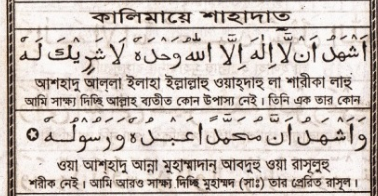 কালিমায়ে শাহাদাত
اَشْهَدُ اَنْ لَّا اِلٰهَ اِلَّا اللّٰهُ وَحْدَهٗ لَا شَرِيْكَ لَهٗ
আশহাদু আল্লা ইলাহা ইল্লাল্লাহু ওয়াহ্‌দাহু লা শারীকা লাহু
আমি সাক্ষ্য দিচ্ছি আল্লাহ ব্যতীত কোন উপাস্য নেই । তিনি এক তার কোন
وَاَشْهَدُ اَنَّ مُحَمَّدًا عَبْدُهٗ وَرَسُوْلُهٗ
ওয়া আশহাদু আন্না মুহাম্মাদান্ আবদুহু ওয়া রাসূলুহু
শরীক নেই । আমি আরও সাক্ষ্য দিচ্ছি মুহাম্মদ (সাঃ) তার প্রেরিত রাসূল ।